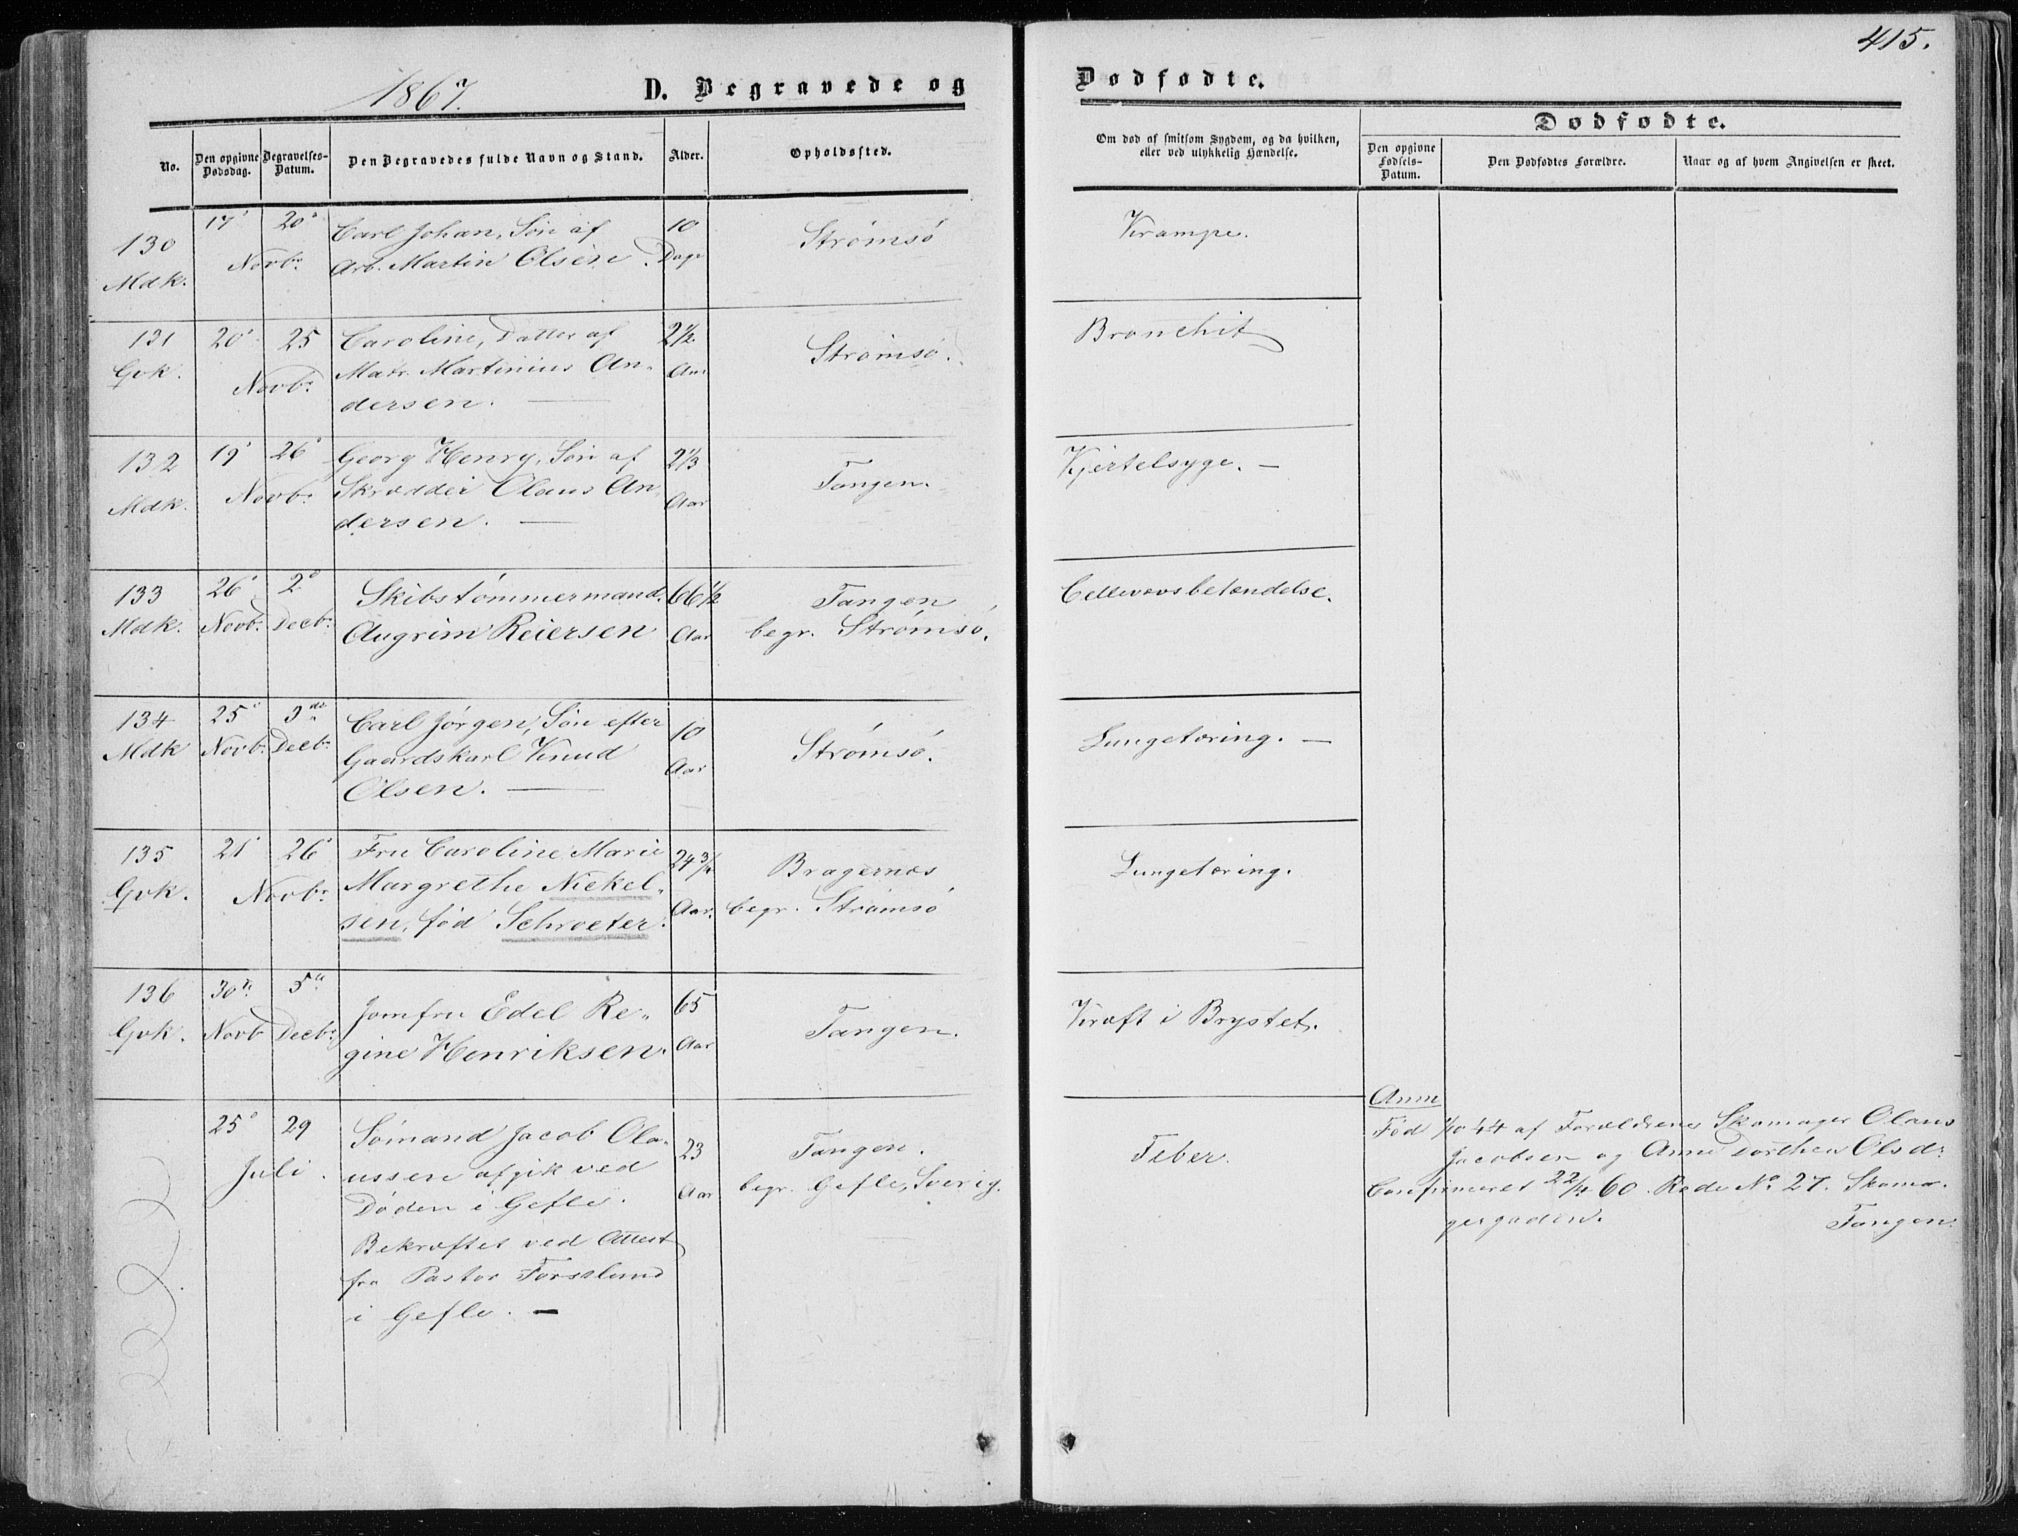 415.
1867.
D. Begravede og
Dødfødte.
No.
Den opgivne Dødsdag.
Begravelses-Datum.
Den Begravedes fulde Navn og Stand.
Alder.
Opholdssted.
Om død af smitsom Sygdom, og da hvilken,
eller ved ulykkelig Hændelse.
Dødfødte.
Den opgivne Fødsels-Datum.
Den Dødfødtes Forældre.
Naar og af hvem Angivelsen er skeet.
130
Mdk.
17 20
Novbr.
Carl Johan, Søn af
Arb. Martin Olsen.
10
Dage
Strømsø
Krampe.
131
Qvk.
20 25
Novbr.
Caroline, Datter af
Matr. Martinius An-
dersen. —
2 1/2
Aar
Strømsø.
Bronchit
132
Mdk.
19 26
Novbr.
Georg Henry, Søn af
Skrædder Olaus An-
dersen. —
2 1/3
Aar
Tangen.
Kjertelsyge. —
133
Mdk.
26 2
Novbr. Decbr.
Skibstømmermand
Augrim Reiersen
66 1/2
Aar
Tangen
begr. Strømsø.
Cellevævsbetændelse.
134
Mdk
25 3die
Novbr. Decbr.
Carl Jørgen, Søn efter
Gaardskarl Knud
Olsen. —
10
Aar
Strømsø.
Lungetæring. —
135
Qvk.
21 26
Novbr.
Fru Caroline Marie
Margrethe Nickel-
sen, fød Schroeter.
24 3/4
Aar.
Bragernæs
begr. Strømsø
Lungetæring.
136
Qvk.
30 5
Novb Decbr.
Jomfru Edel Re-
gine Henriksen.
65
Aar
Tangen.
Kræft i Brystet.
25 29
Juli.
Sømand Jacob Ola-
ussen afgik ved
Døden i Gefle.
Bekræftet ved Attest
fra Pastor Forsslund
i Gefle. —
23
Aar
Tangen.
begr. Gefle, Sverig.
Feber.
Anm
Fød 44 af Forældrene Skomager Olaus
Jacobsen og Anne Dorthea Olsdr.
Confirmeret 22/4 60. Rode No. 27. Skoma-
gergaden. Tangen.